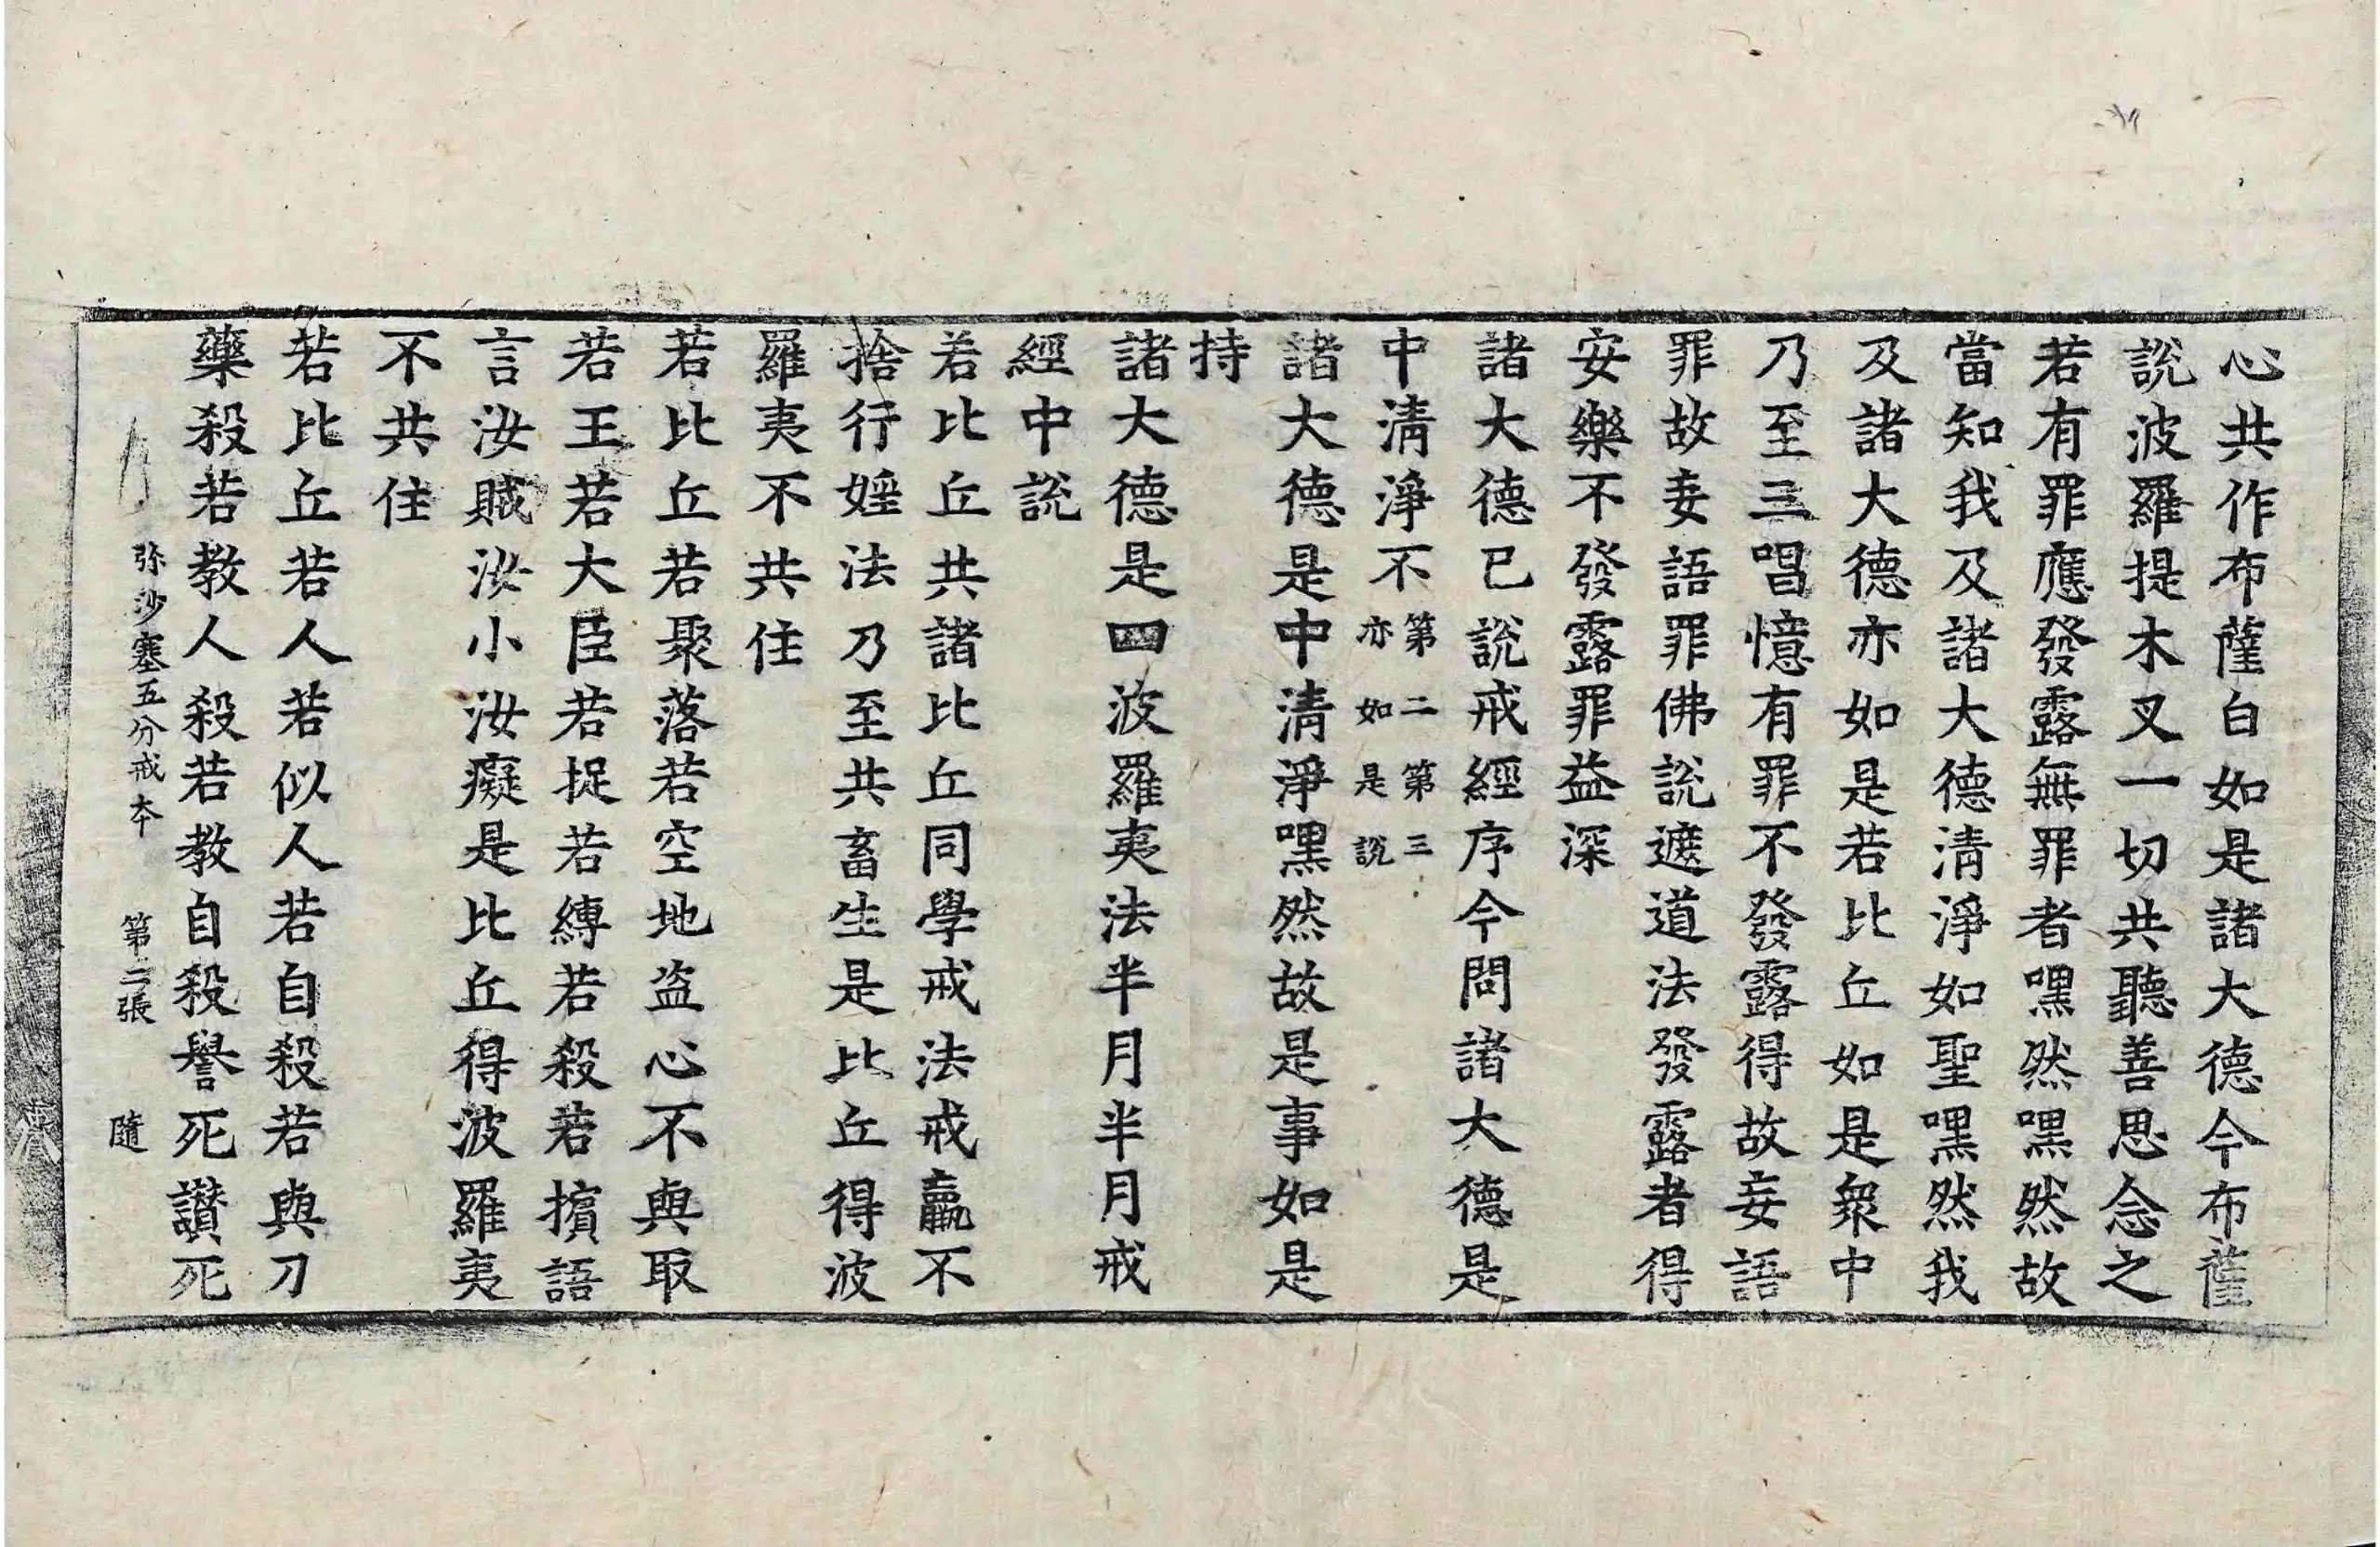 心共作布薩白如是諸大德今布薩
說波羅提木叉一切共聽善思念之
若有罪應發露無罪者嘿然嘿然故
當知我及諸大德清淨如聖嘿然我
及諸大德亦如是若比丘如是衆中
乃至三唱憶有罪不發露得故妄語
罪故妄語罪佛說遮道法發露者得
安樂不發露罪益深
諸大德已說戒經序今問諸大德是
中清淨不第二第三亦如是說
諸大德是中清淨嘿然故是事如是
持
諸大德是四波羅夷法半月半月戒
經中說
若比丘共諸比丘同學戒法戒羸不
捨行婬法乃至共畜生是比丘得波
羅夷不共住
若比丘若聚落若空地盜心不與取
若王若大臣若捉若縛若殺若擯語
言汝賊汝小汝癡是比丘得波羅夷
不共住
若比丘若人若似人若自殺若與刀
藥殺若教人殺若教自殺譽死讃死
弥沙塞五分戒本 第二張 隨